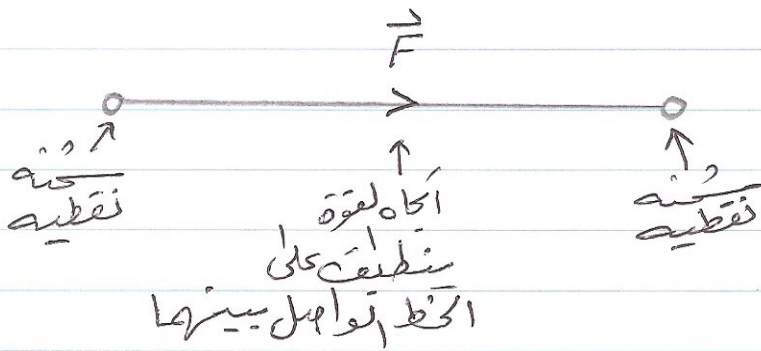 F
شحنه
نقطيه
اتجاه لقوة
ينطبق على
الخط الواصل بينهما
شحنه
نقطيه